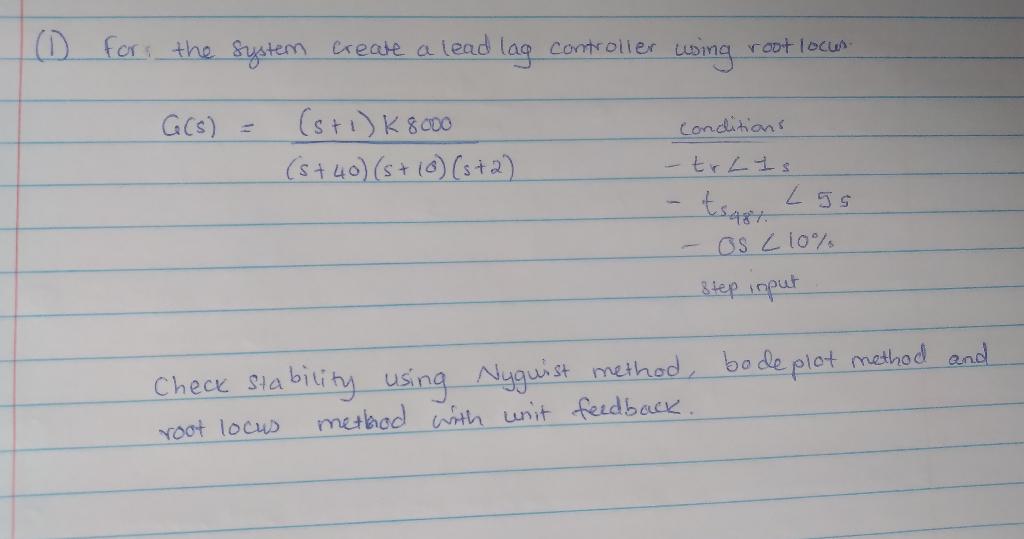 (1) For: the System create a lead lag controller using root locus.
G(s) = (s+1) K 8000
(s+40)(s+10)(s+2)
conditions
- tr < 1 s
- ts98% < 5 s
- OS < 10%
step input
Check stability using Nyquist method, bode plot method and
root locus method with unit feedback.